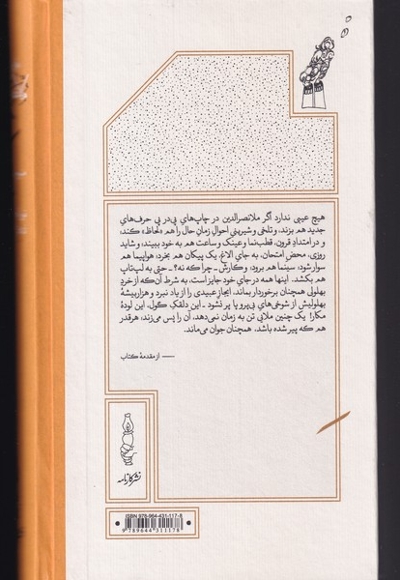 هیچ عیبی ندارد اگر ملانصرالدین در چاپ‌های پی‌در پی حرف‌های
جدید هم بزند، و تلخی و شیرینی احوالِ زمانِ حال را هم «لحاظ» کند،
و در امتدادِ قرون، قطب‌نما و عینک و ساعت هم به خود ببیند؛ و شاید
روزی، محضِ امتحان، به جای الاغ، یک پیکان هم بخرد؛ هواپیما هم
سوار شود؛ سینما هم برود؛ و کارش ـ چرا که نه؟ ـ حتی به لپ‌تاپ
هم بکشد. اینها همه در جای خود جایز است، به شرط آن‌که از خردِ
بهلولی همچنان برخوردار بماند، ایجازِ عبیدی را از یاد نبرد و هزاربیشهٔ
بهلولیش از شوخی‌های بی‌پروا پر نشود ـ این دلقک گول، این لودهٔ
مکار! یک چنین ملایی تن به زمان نمی‌دهد، آن را پس می‌زند؛ هرقدر
هم که پیر شده باشد، همچنان جوان می‌ماند.
— از مقدمهٔ کتاب
نشر کارنامه
ISBN 978-964-431-117-8
9789644311178